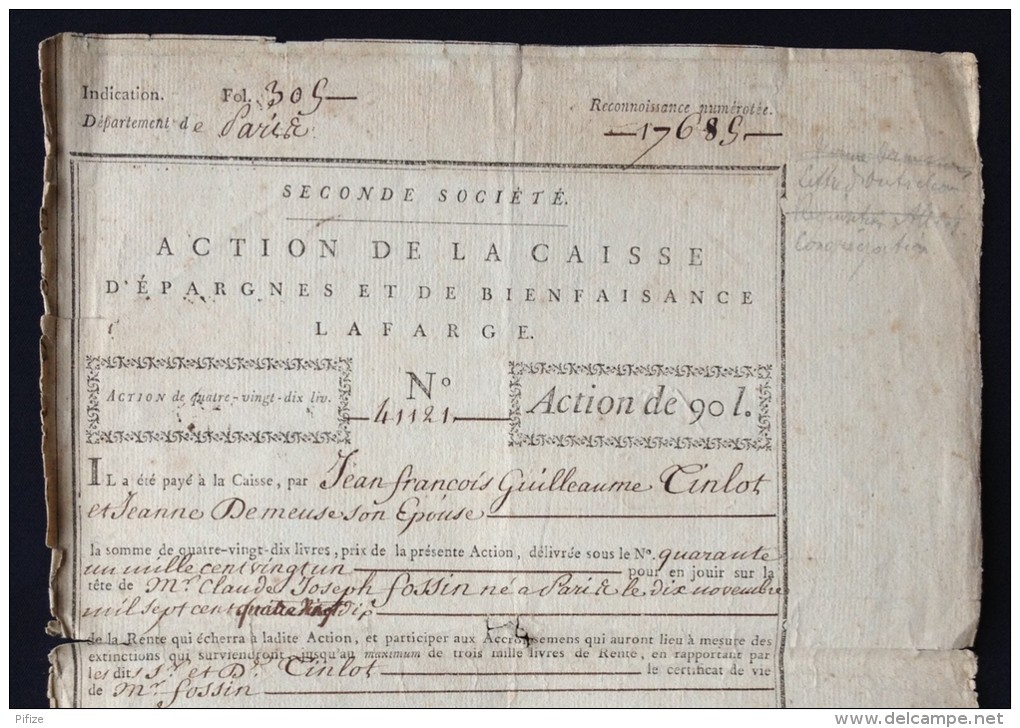 Indication. Fol. 305
Département de Paris
Reconnoissance numérotée.
17685
SECONDE SOCIÉTÉ.
ACTION DE LA CAISSE
D'ÉPARGNES ET DE BIENFAISANCE
LAFARGE.
ACTION de quatre-vingt-dix liv.
No
41121
Action de 90 l.
IL a été payé à la Caisse, par Jean françois Guilleaume Tinlot
et Jeanne Demeuse son Epouse
la somme de quatre-vingt-dix livres, prix de la présente Action, délivrée sous le No. quarante
un mille cent vingt un pour en jouir sur la
tête de Mr. Claude Joseph fossin né a Paris le dix novembre
mil sept cent quatre vingt dix
de la Rente qui écherra à ladite Action, et participer aux Accroissemens qui auront lieu à mesure des
extinctions qui surviendront jusqu'au maximum de trois mille livres de Rente, en rapportant par
les dits Sr. et De. Tinlot le certificat de vie
de Mr. fossin
Congrégation
Pifize
www.delcampe.net